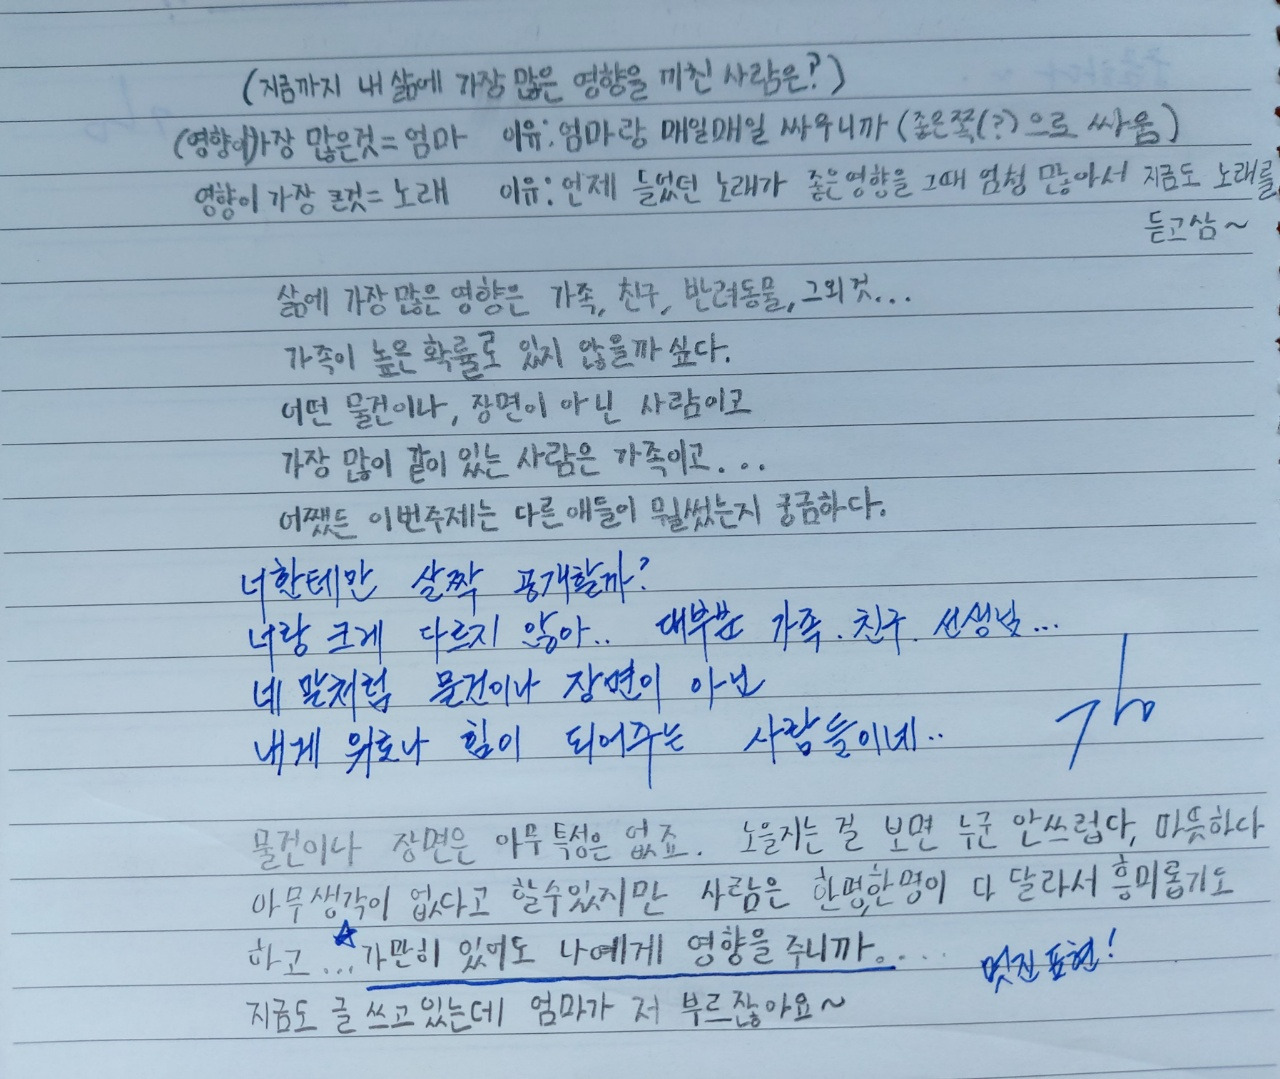 (지금까지 내 삶에 가장 많은 영향을 끼친 사람은?)
(영향이)가장 많은것= 엄마 이유: 엄마랑 매일매일 싸우니까 (좋은쪽(?)으로 싸움)
영향이 가장 큰것= 노래 이유: 언제 들었던 노래가 좋은영향을 그때 엄청 많아서 지금도 노래를
듣고삼~
삶에 가장 많은 영향은 가족, 친구, 반려동물, 그외것...
가족이 높은 확률로 있지 않을까 싶다.
어떤 물건이나, 장면이 아닌 사람이고
가장 많이 같이 있는 사람은 가족이고...
어쨌든 이번주제는 다른애들이 뭘썼는지 궁금하다.
너한테만 살짝 공개할까?
너랑 크게 다르지 않아.. 대부분 가족. 친구. 선생님...
네 말처럼 물건이나 장면이 아닌
내게 위로나 힘이 되어주는 사람들이네..
물건이나 장면은 아무 특성은 없죠. 노을지는 걸 보면 누군 안쓰럽다, 따뜻하다
아무생각이 없다고 할수있지만 사람은 한명,한명이 다 달라서 흥미롭기도
하고 ...☆가만히 있어도 나에게 영향을 주니까.... 멋진 표현!
지금도 글 쓰고있는데 엄마가 저 부르잖아요~